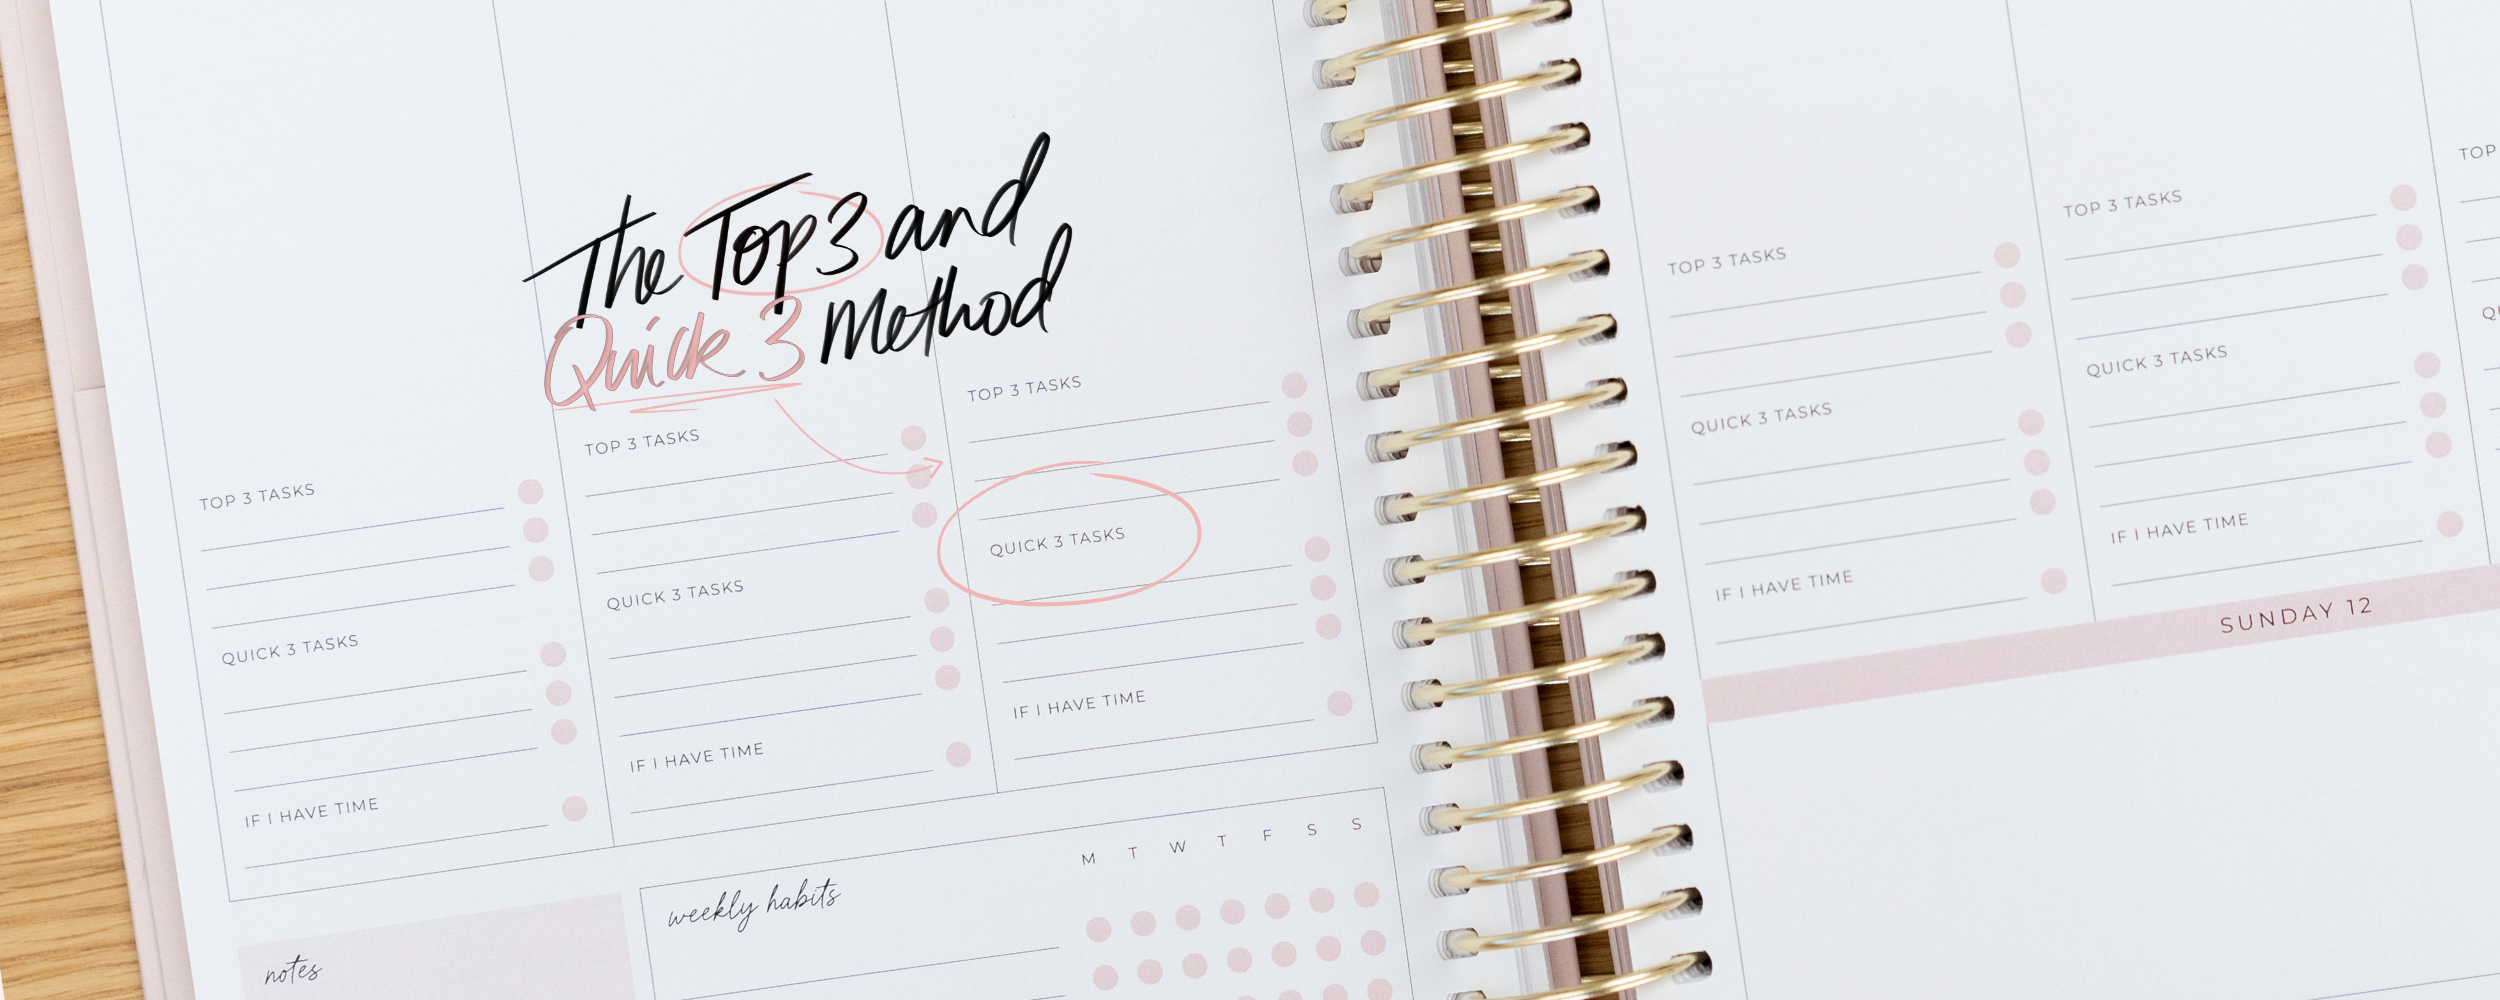 The Top 3 and
Quick 3 Method
TOP 3 TASKS
QUICK 3 TASKS
IF I HAVE TIME
TOP 3 TASKS
QUICK 3 TASKS
IF I HAVE TIME
TOP 3 TASKS
QUICK 3 TASKS
IF I HAVE TIME
notes
weekly habits
M T W T F S S
TOP 3 TASKS
QUICK 3 TASKS
IF I HAVE TIME
TOP 3 TASKS
QUICK 3 TASKS
IF I HAVE TIME
TOP
SUNDAY 12